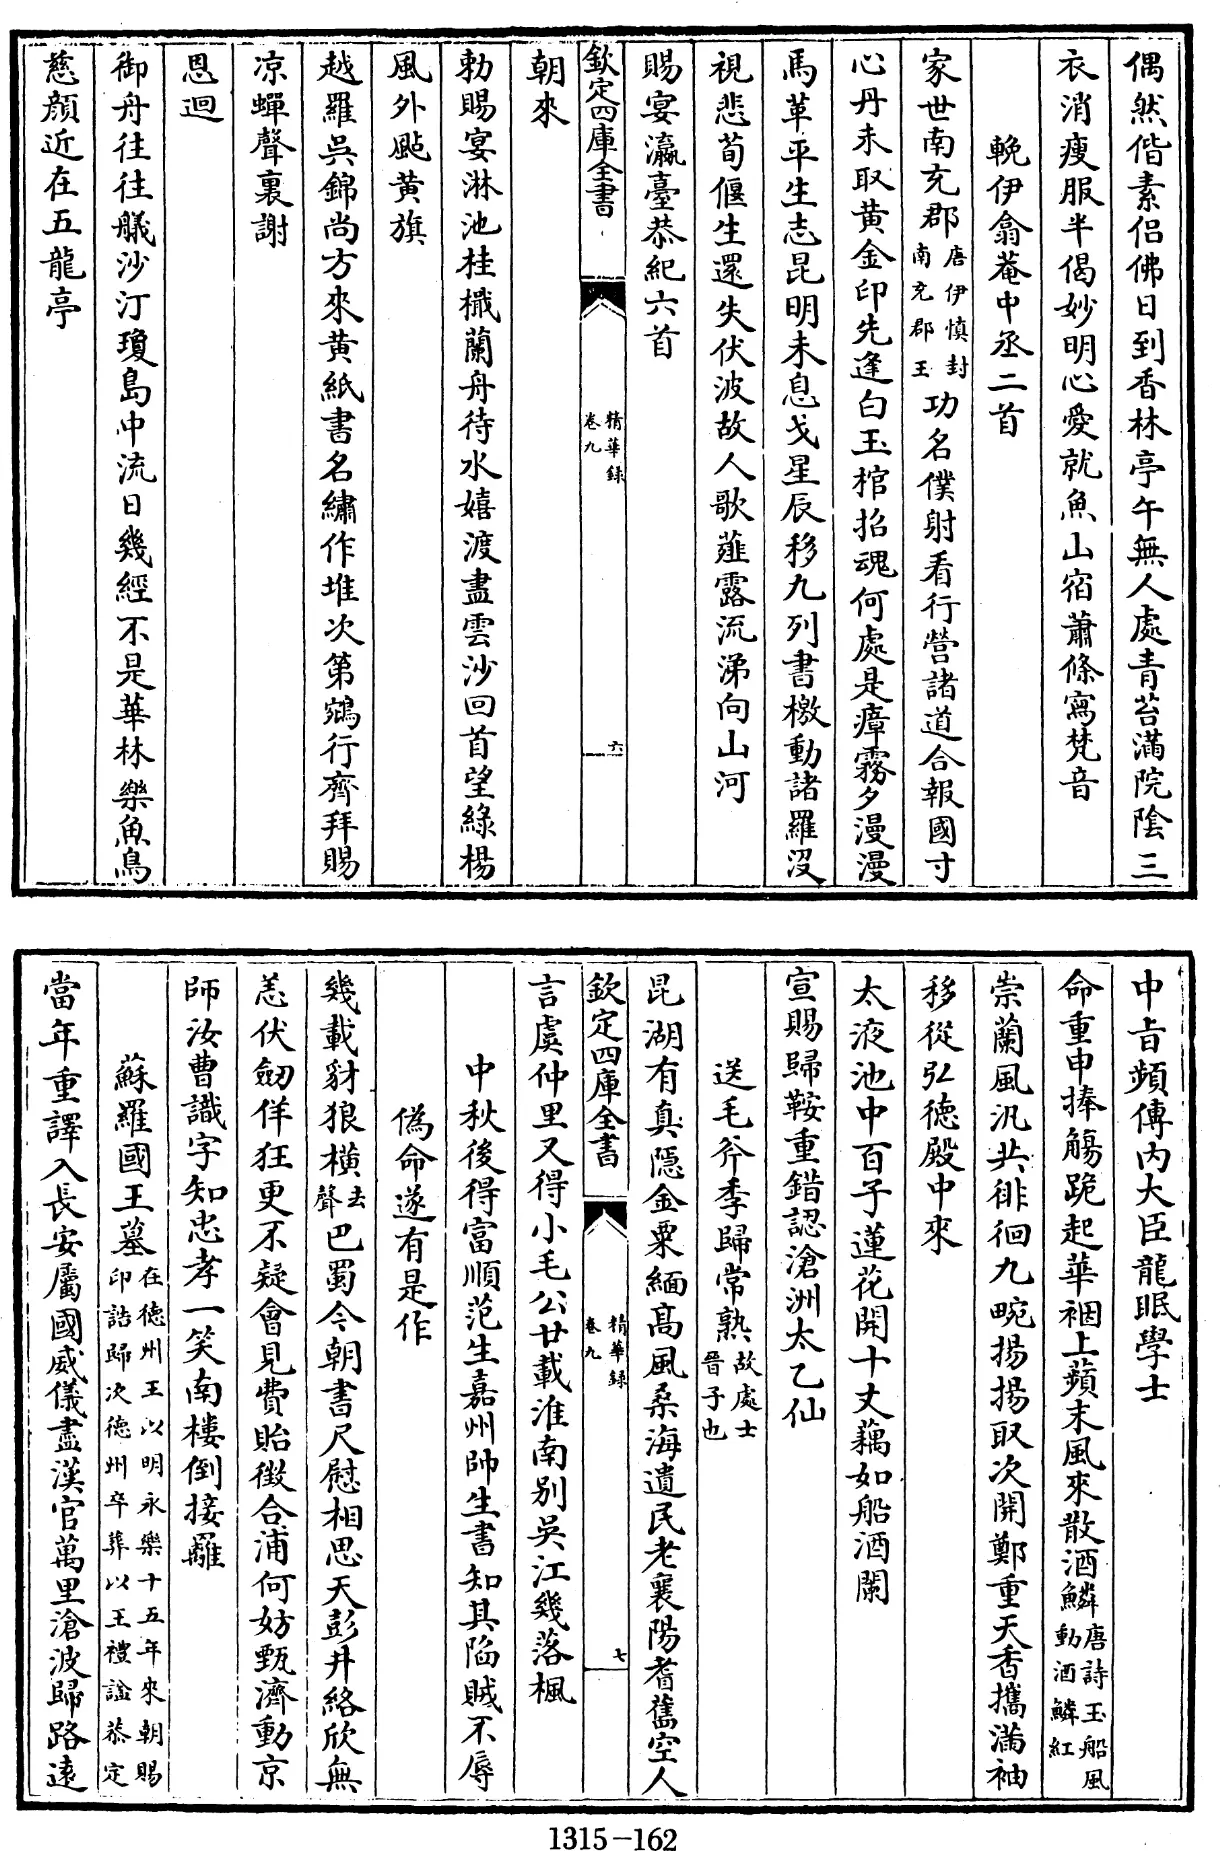 偶然偕素侶佛日到香林亭午無人處青苔滿院陰三
衣消瘦服半偈妙明心愛就魚山宿蕭條寫梵音
輓伊翕菴中丞二首
家世南充郡唐伊慎封南充郡王功名僕射看行營諸道合報國寸
心丹未取黄金印先逢白玉棺招魂何處是瘴霧夕漫漫
馬革平生志昆明未息戈星辰移九列書檄動諸羅沒
視悲荀偃生還失伏波故人歌薤露流涕向山河
賜宴瀛臺恭紀六首
欽定四庫全書
精華録
卷九
六
朝來
勅賜宴淋池桂檝蘭舟待水嬉渡盡雲沙回首望綠楊
風外颭黄旗
越羅吳錦尚方來黄紙書名繡作堆次第鵷行齊拜賜
凉蟬聲裏謝
恩迴
御舟往往艤沙汀瓊島中流日幾經不是華林樂魚鳥
慈顔近在五龍亭
中㫖頻傳内大臣龍眠學士
命重申捧觴跪起華裀上蘋末風來散酒鱗唐詩玉船風動酒鱗紅
崇蘭風汎共徘徊九畹揚揚取次開鄭重天香攜滿袖
移從弘德殿中來
太液池中百子蓮花開十丈藕如船酒闌
宣賜歸鞍重錯認滄洲太乙仙
送毛斧季歸常熟故處士晉子也
昆湖有真隱金粟緬高風桑海遺民老襄陽耆舊空人
欽定四庫全書
精華録
卷九
七
言虞仲里又得小毛公廿載淮南别吳江幾落楓
中秋後得富順范生嘉州帥生書知其陷賊不辱
偽命遂有是作
幾載豺狼横去聲巴蜀今朝書尺慰相思天彭井絡欣無
恙伏劒佯狂更不疑會見費貽徴合浦何妨甄濟動京
師汝曹識字知忠孝一笑南樓倒接䍦
蘇羅國王墓在德州王以明永樂十五年來朝賜印誥歸次德州卒葬以王禮諡恭定
當年重譯入長安屬國威儀盡漢官萬里滄波歸路逺
1315-162